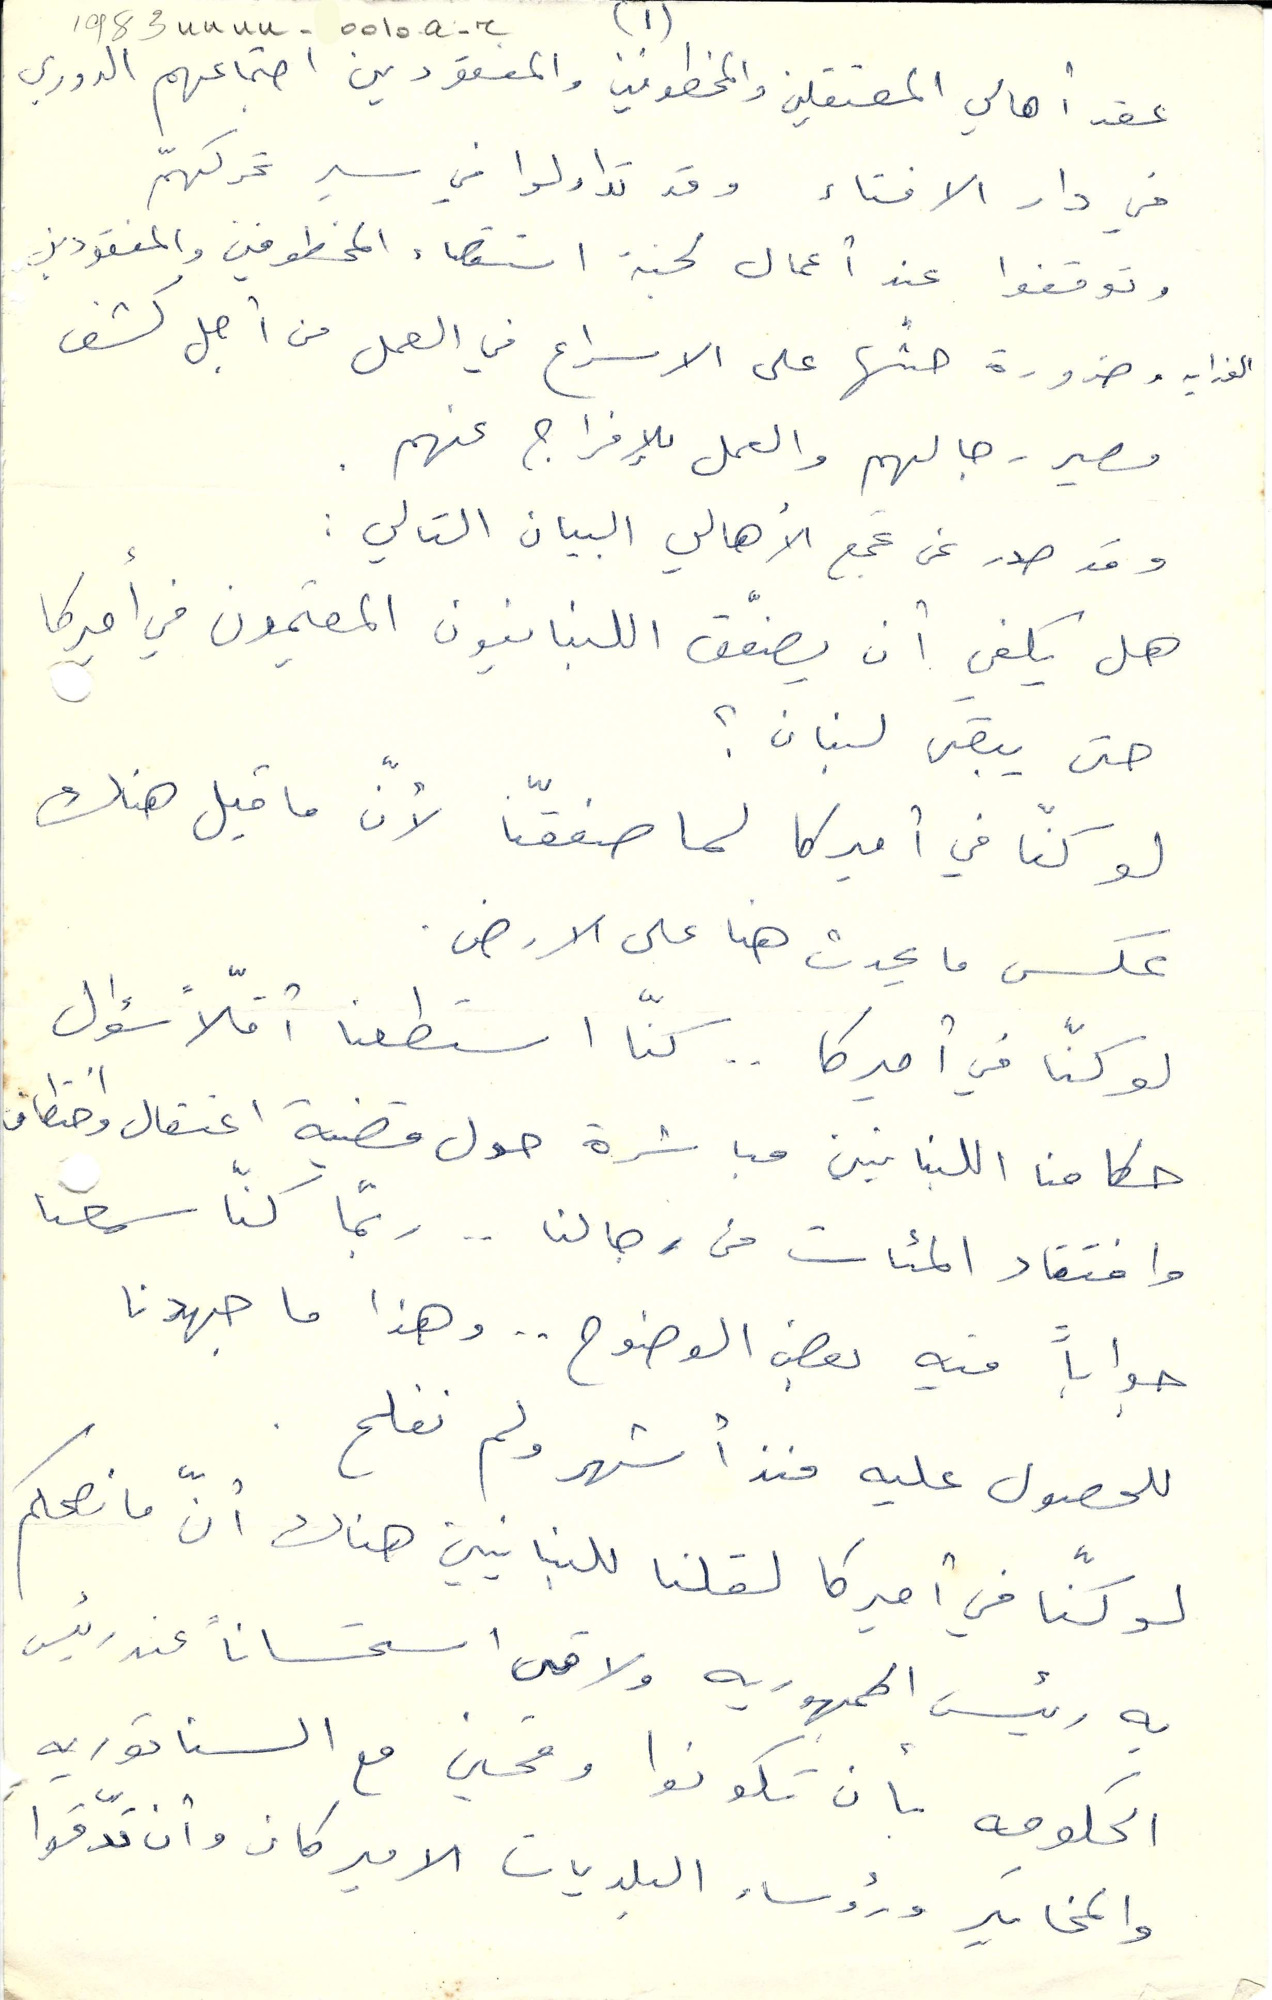 1983uuuu-0010.a-r
(١)
عقد أهالي المعتقلين والمخطوفين والمفقودين اجتماعهم الدوري
في دار الافتاء وقد تداولوا في سير تحركهمّ
وتوقفوا عند أعمال لجنة استقصاء المخطوفين والمفقودين
وضرورة حثّها على الاسراع في العمل من أجل كشف
مصير رجالهم والعمل للإفراج عنهم .
وقد صدر عن تجمع الأهالي البيان التالي :
هل يكفي أن يصفّق اللبنانيون المقيمون في أميركا
حتى يبقى لبنان ؟
لو كنّا في أميركا لما صفقنّا لأنّ ما قيل هناك
عكس ما يحدث هنا على الارض .
لو كنّا في أميركا .. كنّا استطعنا أقلّاً سؤال
حكامنا اللبنانيين مباشرة حول قضية اعتقال واختطاف
وافتقاد المئات من رجالنا .. ربّما كنّا سمعنا
جواباً فيه بعض الوضوح .. وهذا ما جهدنا
للحصول عليه منذ أشهر ولم نفلح .
لو كنّا في أميركا لقلنا للبنانيين هناك أنّ ما نصحكم
به رئيس الجمهوريه ولاقى استحساناً عند رئيس
الحكومه بأن تكونوا وقحين مع السناتوريه
والمخاتير ورؤساء البلديات الاميركان وأن تدّقوا